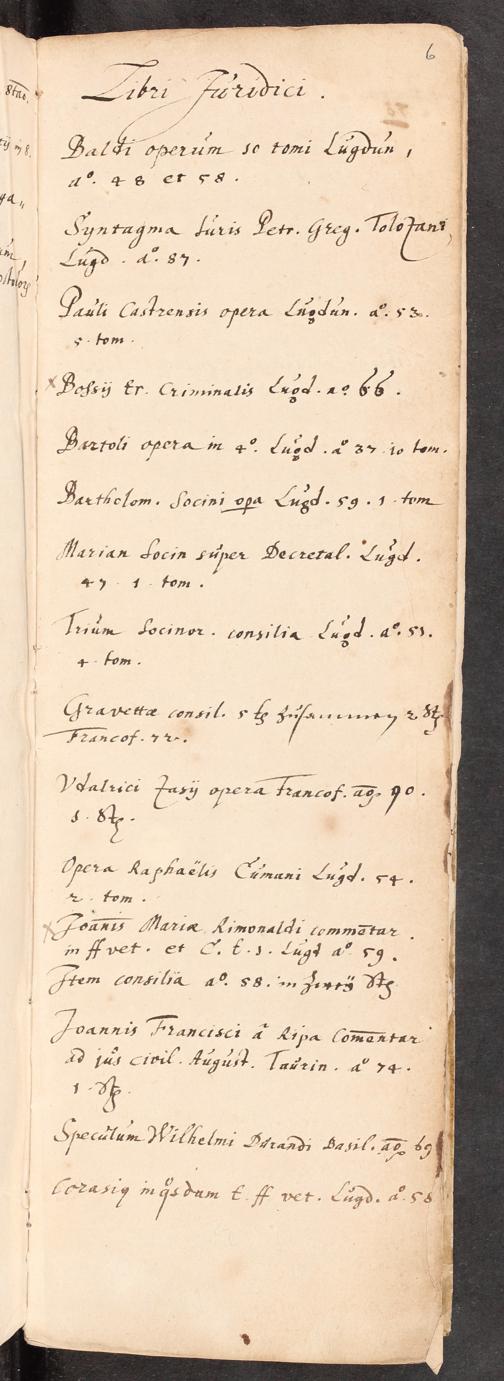 6
Libri Juridici.
Baldi operum 10 tomi Lugdun,
aº. 48 et 58.
Syntagma Iuris Petr. Greg. Tolozani,
Lugd. aº. 87.
Pauli Castrensis opera Lugdun. aº. 53.
5. tom.
Bossij tr. Criminalis Lugd. aº 66.
Bartoli opera in 4º. Lugd. aº 37. 10 tom.
Bartholom. Socini opa Lugd. 59. 1. tom
Marian Socin super Decretal. Lugd.
47. 1. tom.
Trium Socinor. consilia Lugd. aº. 51.
4. tom.
Gravettæ consil. 5 zusammen 2
Francof. 72.
Vdalrici Zasij opera Francof. aº 90.
1.
Opera Raphaëlis Cumani Lugd. 54.
2. tom.
Joanis Mariæ Rimonaldi commētar.
in ff vet. et C. t. 1. Lugd aº. 59.
Item consilia aº. 58. in
Joannis Francisci â Ripa Comentar
ad jus civil. August. Taurin. aº 74.
1.
Speculum Wilhelmi Durandi Basil. aº 69
Corasij in t. ff vet. Lugd. aº. 58